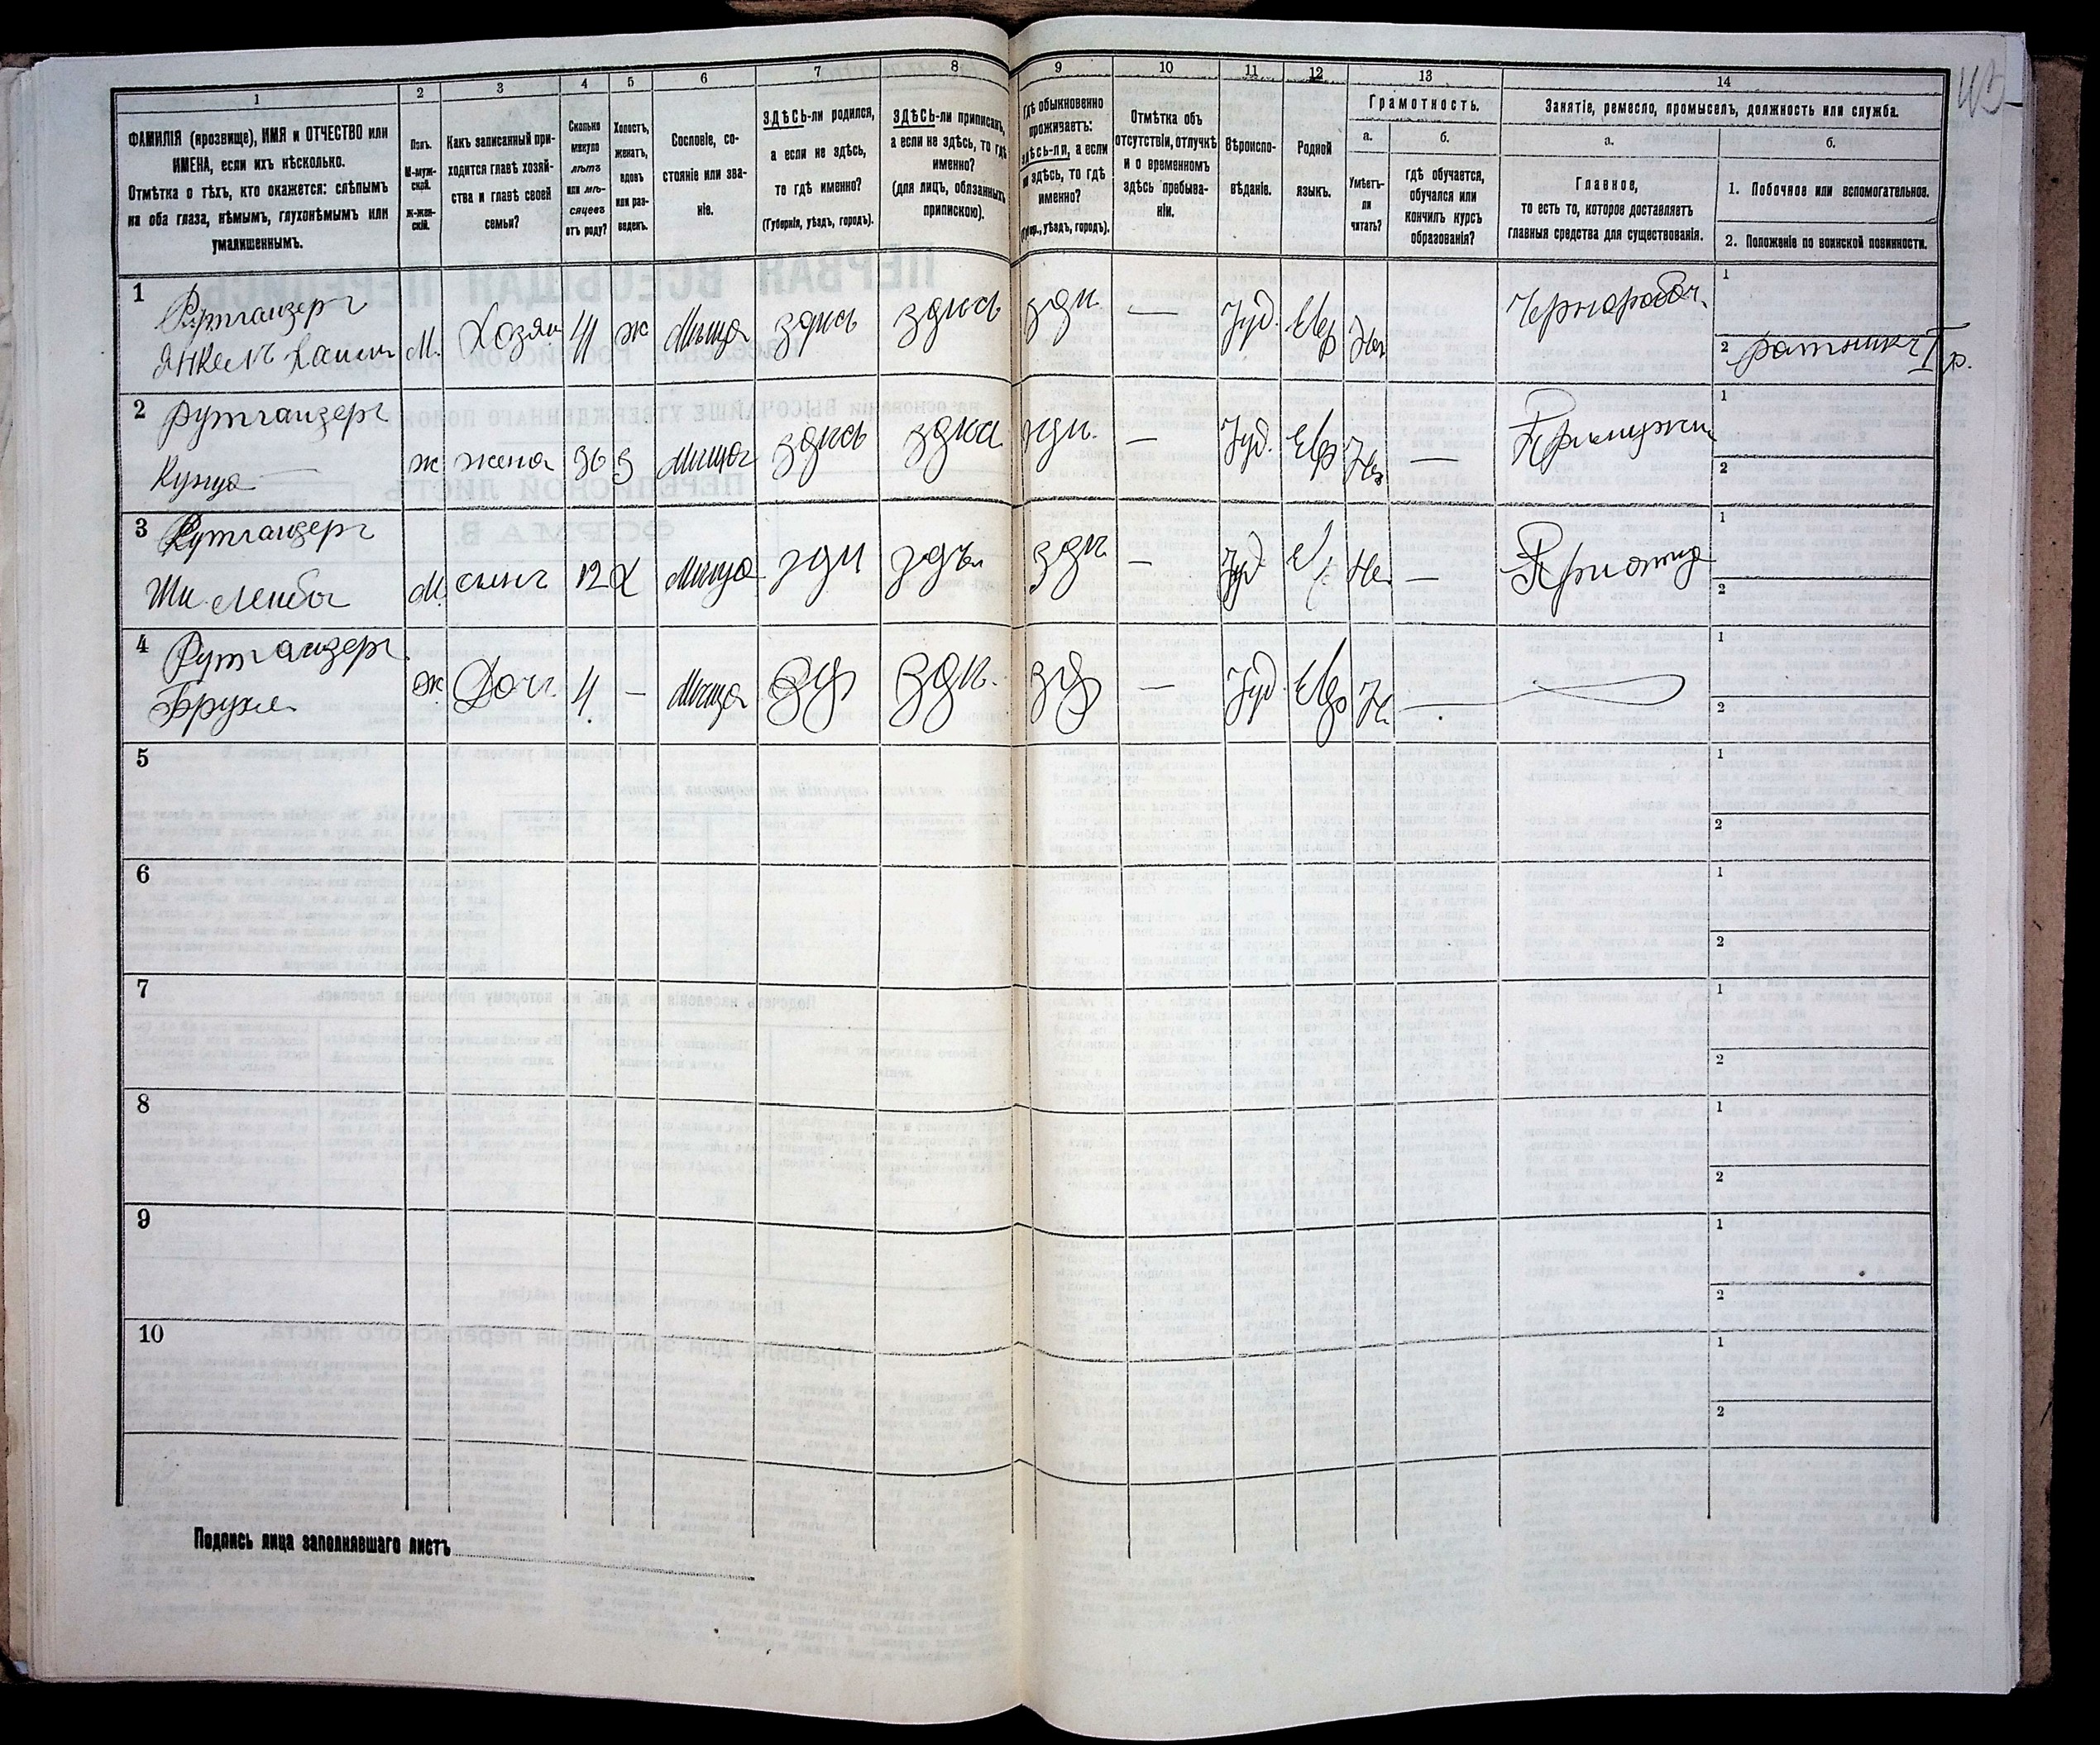 1 2 3 4 5 6 7 8 9 10 11 12 13 14
ФАМИЛІЯ (прозвище), ИМЯ и ОТЧЕСТВО или
ИМЕНА, если ихъ нѣсколько.
Отмѣтка о тѣхъ, кто окажется: слѣпымъ
на оба глаза, нѣмымъ, глухонѣмымъ или
умалишеннымъ.
Полъ.
М-муж-
ской.
Ж-жен-
скій.
Какъ записанный при-
ходится главѣ хозяй-
ства и главѣ своей
семьи?
Сколько
минуло
лѣтъ
или мѣ-
сяцевъ
отъ роду?
Холостъ,
женатъ,
вдовъ
или раз-
веденъ.
Сословіе, со-
стояніе или зва-
ніе.
ЗДѢСЬ-ли родился,
а если не здѣсь,
то гдѣ именно?
(Губернія, уѣздъ, городъ).
ЗДѢСЬ-ли приписанъ,
а если не здѣсь, то гдѣ
именно?
(для лицъ, обязанныхъ
припискою).
Гдѣ обыкновенно
проживаетъ:
здѣсь-ли, а если
не здѣсь, то гдѣ
именно?
(Губер., уѣздъ, городъ).
Отмѣтка объ
отсутствіи, отлучкѣ
и о временномъ
здѣсь пребыва-
ніи.
Вѣроиспо-
вѣданіе.
Родной
языкъ.
Грамотность.
а. б.
Умѣетъ-
ли
читать?
гдѣ обучается,
обучался или
кончилъ курсъ
образованія?
Занятіе, ремесло, промыселъ, должность или служба.
а. б.
Главное,
то есть то, которое доставляетъ
главныя средства для существованія.
1. Побочное или вспомогательное.
2. Положеніе по воинской повинности.
1 Рутгайзеръ
Янкель М. Хозяи ж Мѣща здѣсь здѣсь здѣ — Іуд. Евр Не Чернорабоч. 1
2 ратникъ
2 Рутгайзеръ
ж жена 36 З Мѣща здѣсь здѣс здѣ. — Іуд. Евр Не — 1
2
3 Рутгайзеръ
Лейба М. сынъ 12 Х Мѣща здѣ здѣс здѣ — Іуд Не — 1
2
4 Рутгайзеръ
Брухе ж Доч. 4 — Мѣща зд здѣ. зд — Іуд Евр Не 1
2
5 1
2
6 1
2
7 1
2
8 1
2
9 1
2
10 1
2
Подпись лица заполнявшаго листъ